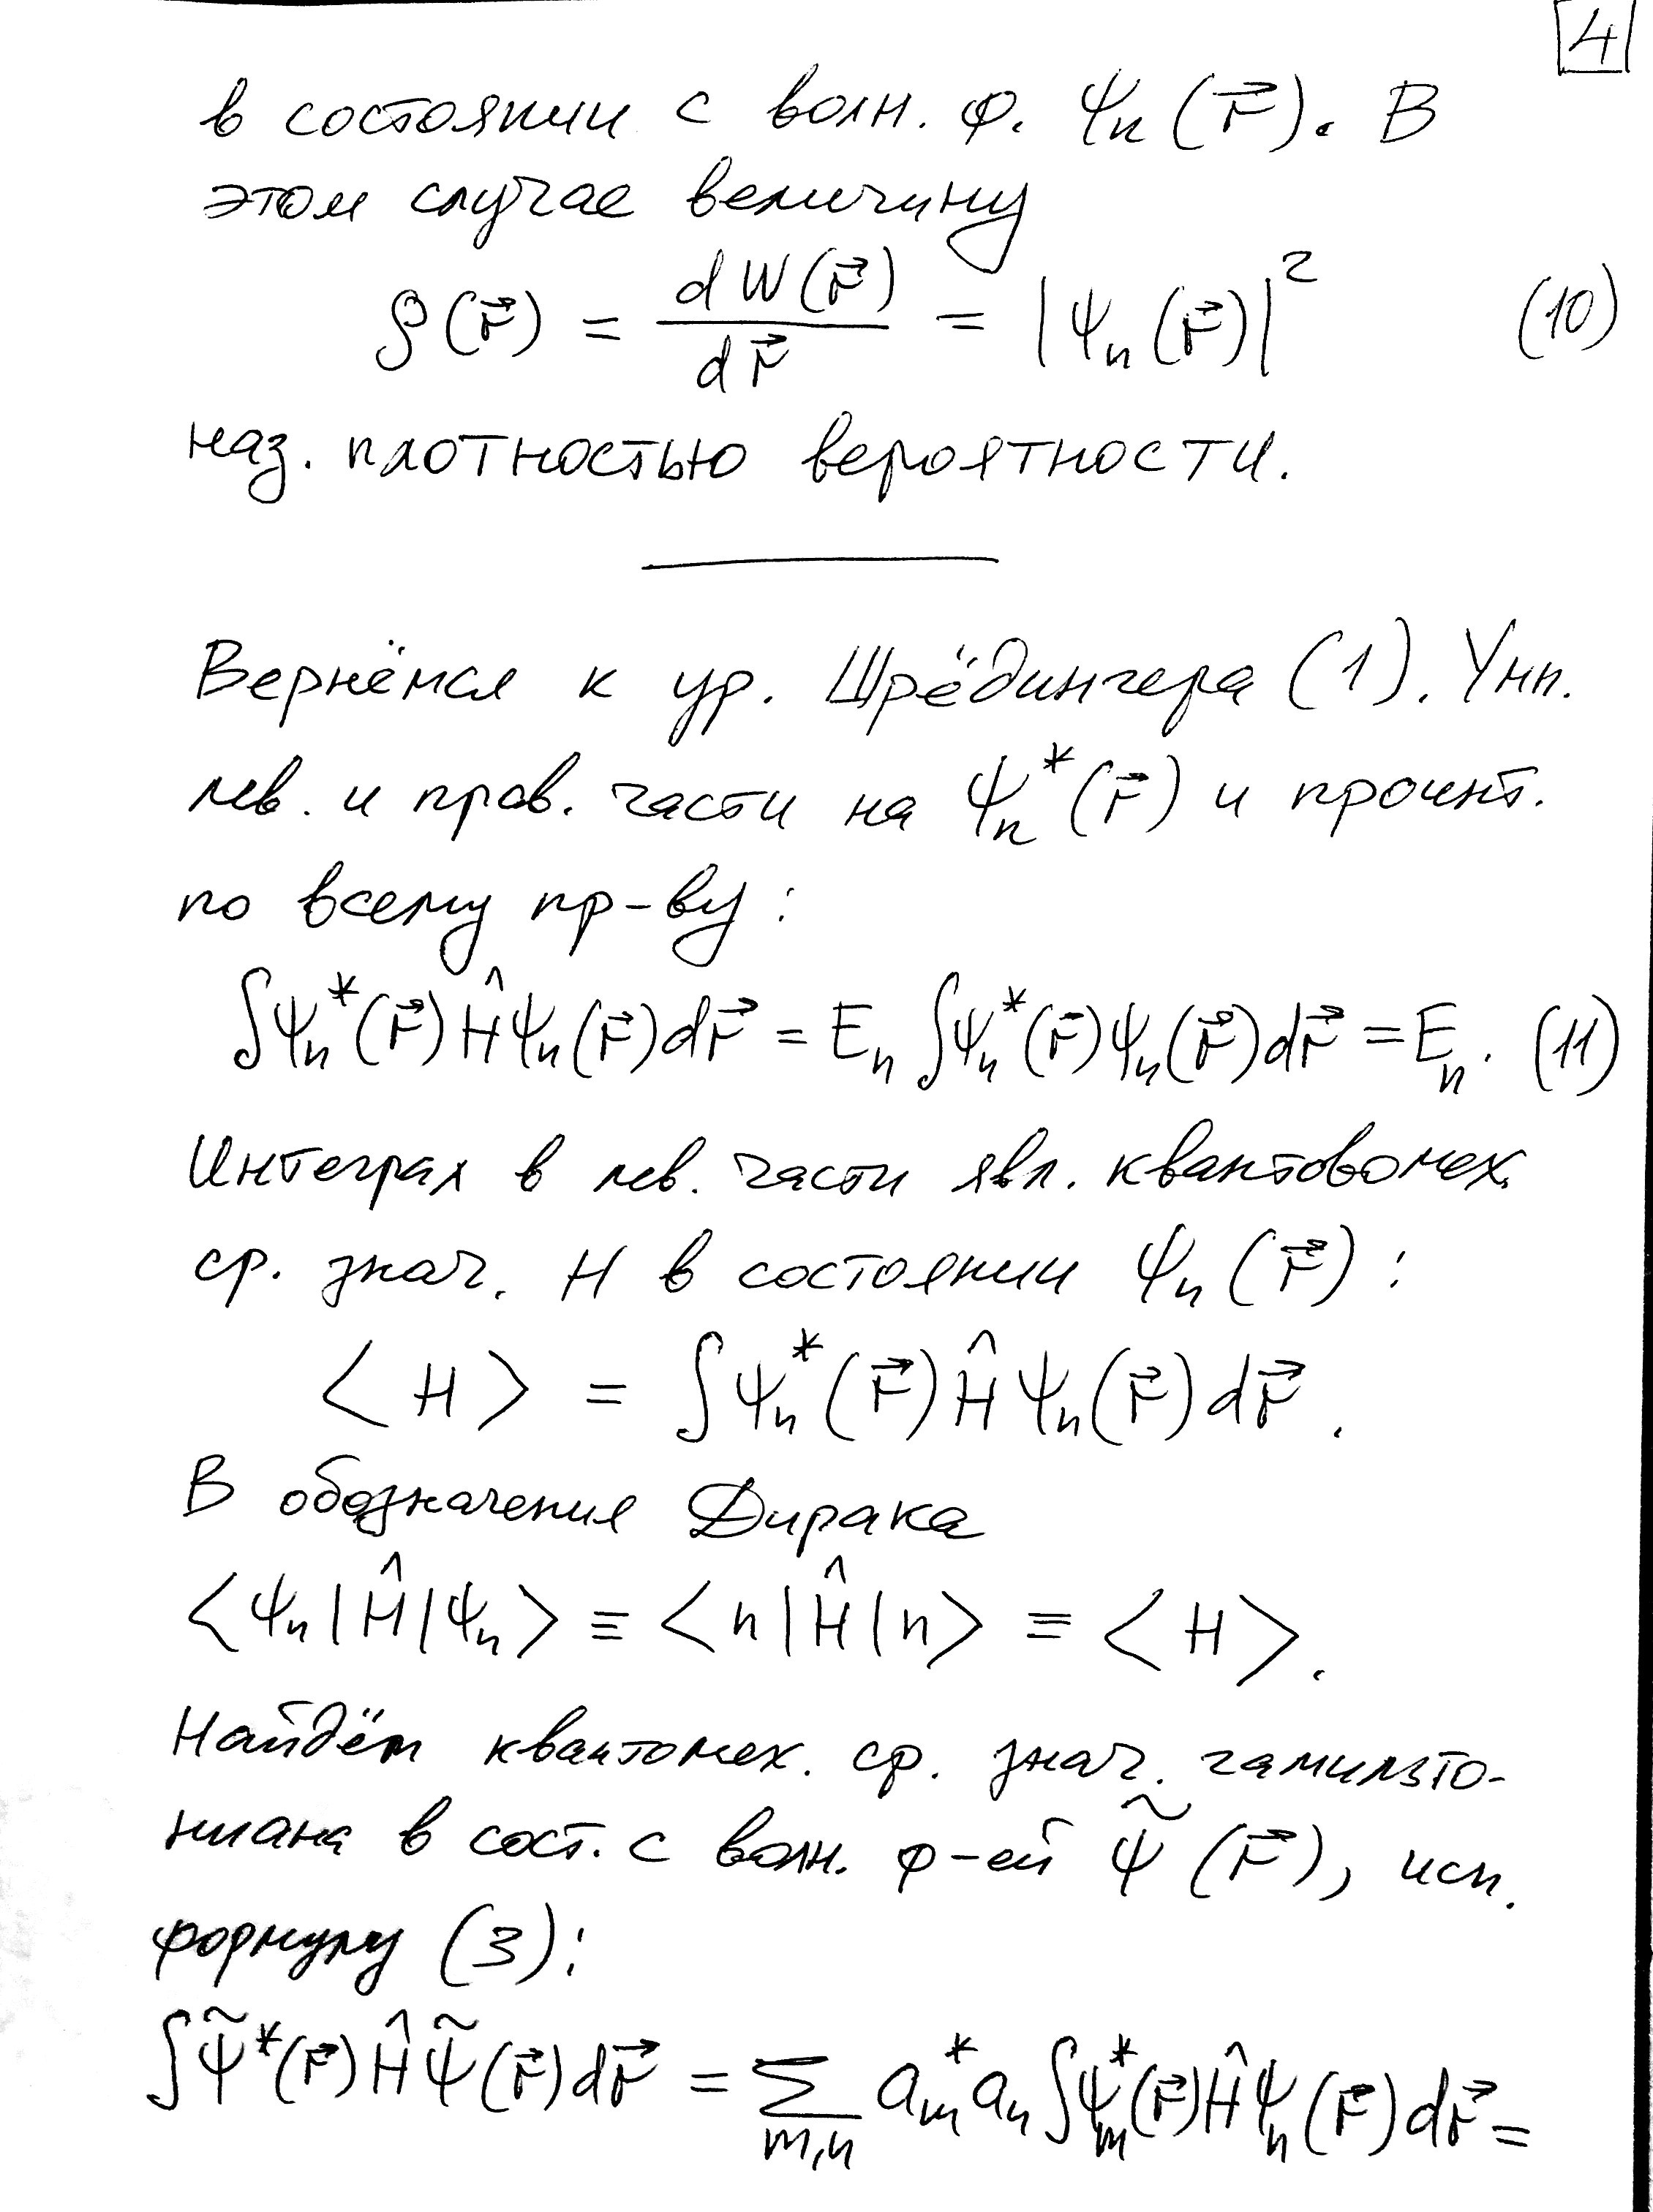 4
в состоянии с волн. ф. ψₙ(r⃗). В
этом случае величину
ρ(r⃗) = dW(r⃗)/dr⃗ = |ψₙ(r⃗)|² (10)
наз. плотностью вероятности.
Вернёмся к ур. Шрёдингера (1). Умн.
лев. и прав. части на ψₙ*(r⃗) и проинт.
по всему пр-ву:
∫ψₙ*(r⃗)Ĥψₙ(r⃗)dr⃗ = Eₙ∫ψₙ*(r⃗)ψₙ(r⃗)dr⃗ = Eₙ. (11)
Интеграл в лев. части явл. квантовомех.
ср. знач. H в состоянии ψₙ(r⃗):
<H> = ∫ψₙ*(r⃗)Ĥψₙ(r⃗)dr⃗.
В обозначения Дирака
<ψₙ|Ĥ|ψₙ> ≡ <n|Ĥ|n> ≡ <H>.
Найдём квантомех. ср. знач. гамильто-
ниана в сост. с волн. ф-ей ψ̃(r⃗), исп.
формулу (3):
∫ψ̃*(r⃗)Ĥψ̃(r⃗)dr⃗ = Σ_{m,n} aₘ*aₙ∫ψₘ*(r⃗)Ĥψₙ(r⃗)dr⃗ =